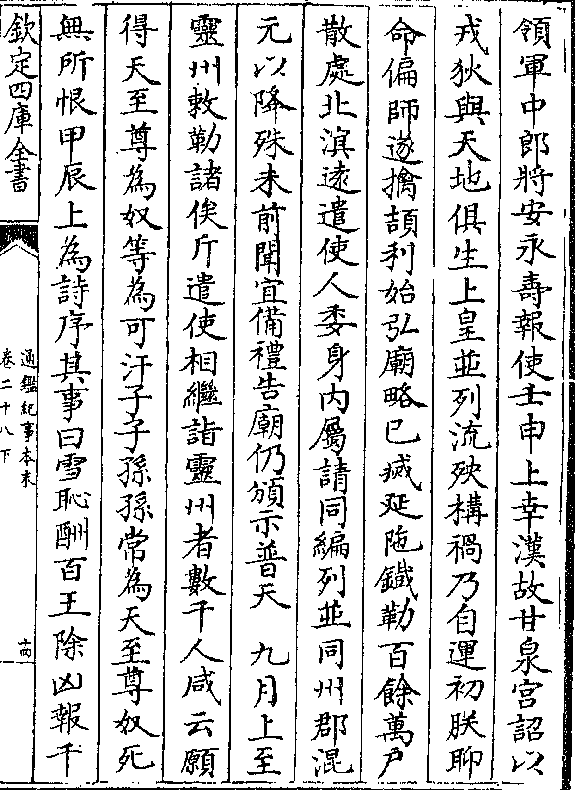 領軍中郎將安永壽報使壬申上幸漢故甘泉宫詔以
戎狄與天地俱生上皇並列流殃構禍乃自運初朕聊
命偏師遂擒頡利始弘廟略已滅延陁鐵勒百餘萬戶
散處北溟逺遣使人委身内屬請同編列並同州郡混
元以降殊未前聞宜備禮告廟仍頒示普天　九月上至
靈州敕勒諸俟斤遣使相繼詣靈州者數千人咸云願
得天至尊為奴等為可汗子子孫孫常為天至尊奴死
無所恨甲辰上為詩序其事曰雪恥酬百王除凶報千
欽定四庫全書
通鑑紀事本末
卷二十八下
十四